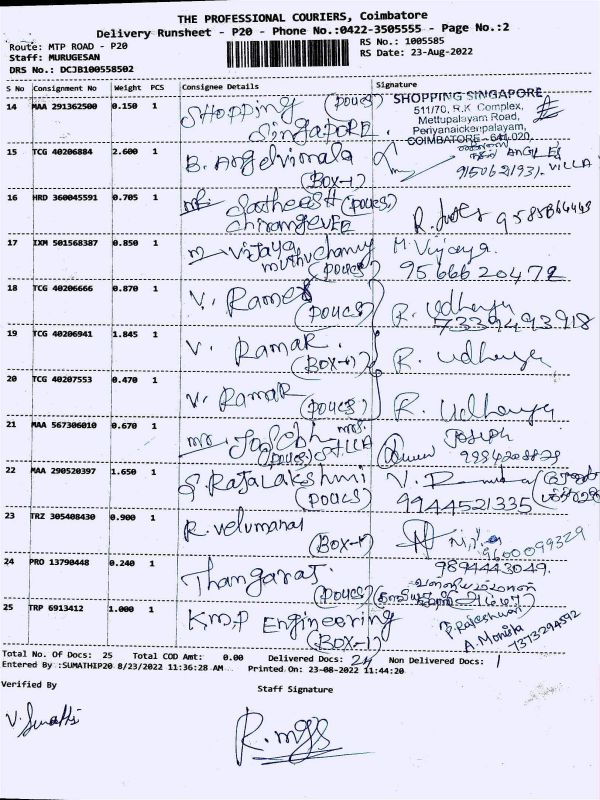 THE PROFESSIONAL COURIERS, Coimbatore
Delivery Runsheet - P20 - Phone No.:0422-3505555 - Page No.:2
Route: MTP ROAD - P20
RS No.: 1005585
Staff: MURUGESAN
RS Date: 23-Aug-2022
DRS No.: DCJB100558502
S No Consignment No Weight PCS Consignee Details Signature
14 MAA 291362500 0.150 1 Shopping (poucs) SHOPPING SINGAPORE
Singapore. 511/70, R.K Complex,
Mettupalayam Road,
Periyanaickenpalayam,
COIMBATORE - 641 020.
15 TCG 40206884 2.600 1 B. Angelvimala
(Box-1) 9150621931. VILLA
16 HRD 360045591 0.705 1 Satheesh (poucs)
Chiranjevee
17 IXM 501568387 0.850 1 Vijaya M. Vijaya.
muthuchamy
(poucs) 9566620472
18 TCG 40206666 0.870 1 V. Ramer R. Udhaya
(poucs) 7339493918
19 TCG 40206941 1.845 1 V. Ramar.
(Box-1) R. Udhaya
20 TCG 40207553 0.470 1 V. Ramar
(poucs) R. Udhaya
21 MAA 567306010 0.670 1 mr. Joseph Joseph
(poucs)
22 MAA 290520397 1.650 1 S. Rajalakshmi
(poucs) 9944521335
23 TRZ 305408430 0.900 1 R. velumanai
(Box-1) 9600099329
24 PRO 13790448 0.240 1 Thangaraj. 9894443049.
(poucs)
25 TRP 6913412 1.000 1 K.M.P Engineering P. Rajeshwari
(Box-1) A. Monisha
7373294592
Total No. Of Docs: 25 Total COD Amt: 0.00 Delivered Docs: 24 Non Delivered Docs: 1
Entered By :SUMATHIP20 8/23/2022 11:36:28 AM Printed On: 23-08-2022 11:44:20
Verified By Staff Signature
V. Sumathi
R. mgs